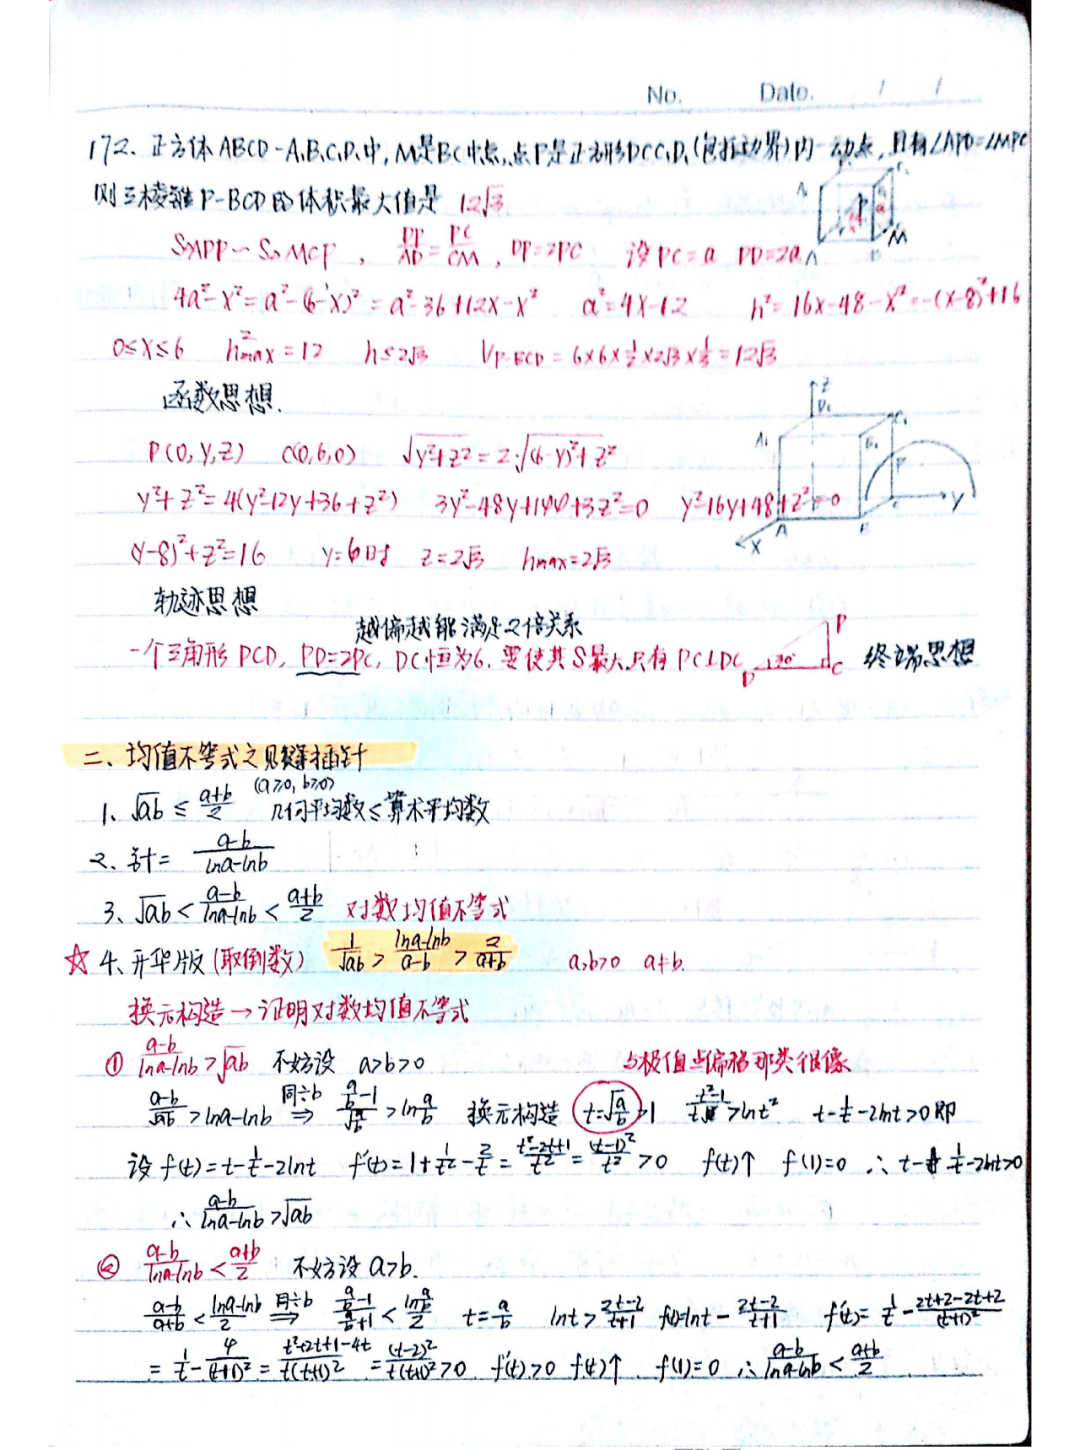 No. Date. / /
172、正方体ABCD-A₁B₁C₁D₁中,M是BC中点,点P是正方形DCC₁D₁(包括边界)内一动点,且有∠APD=∠MPC
则三棱锥P-BCD的体积最大值是 12√3
S△APP~S△MCP, PP/AD=PC/CM, DP=2PC 设PC=a PD=2a
4a²-x²=a²-(6-x)²=a²-36+12x-x² a²=4x-12 h²=16x-48-x²=-(x-8)²+16
0≤x≤6 h²max=12 h≤2√3 V_P-BCD=6×6×1/2×2√3×1/3=12√3
函数思想.
P(0,y,z) C(0,6,0) √(y²+z²)=2·√((6-y)²+z²)
y²+z²=4(y²-12y+36+z²) 3y²-48y+144+3z²=0 y²-16y+48+z²=0
(y-8)²+z²=16 y=6时 z=2√3 hmax=2√3
轨迹思想
越偏越能满足2倍关系
一个三角形PCD,PD=2PC,DC恒为6.要使其S最大只有PC⊥DC 终端思想
二、均值不等式之见缝插针
1、√ab ≤ (a+b)/2 (a≥0,b≥0) 几何平均数≤算术平均数
2、针= (a-b)/(lna-lnb)
3、√ab < (a-b)/(lna-lnb) < (a+b)/2 对数均值不等式
☆4、升华版(取倒数) 1/√ab > (lna-lnb)/(a-b) > 2/(a+b) a,b>0 a≠b.
换元构造→证明对数均值不等式
① (a-b)/(lna-lnb)>√ab 不妨设 a>b>0 与极值点偏移那类很像
(a-b)/√ab>lna-lnb 同÷b⇒ (a/b-1)/√(a/b)>ln a/b 换元构造 t=√(a/b)>1 (t²-1)/t>lnt² t-1/t-2lnt>0即
设f(t)=t-1/t-2lnt f'(t)=1+1/t²-2/t=(t²-2t+1)/t²=(t-1)²/t²>0 f(t)↑ f(1)=0 ∴t-1/t-2lnt>0
∴ (a-b)/(lna-lnb)>√ab
② (a-b)/(lna-lnb)<(a+b)/2 不妨设a>b.
(a-b)/(a+b)<(lna-lnb)/2 同÷b⇒ (a/b-1)/(a/b+1)<(ln a/b)/2 t=a/b lnt>(2t-2)/(t+1) f(t)=lnt-(2t-2)/(t+1) f'(t)=1/t-(2t+2-2t+2)/(t+1)²
=1/t-4/(t+1)²=(t²+2t+1-4t)/t(t+1)²=(t-2)²/t(t+1)²>0 f'(t)>0 f(t)↑ f(1)=0 ∴(a-b)/(lna-lnb)<(a+b)/2